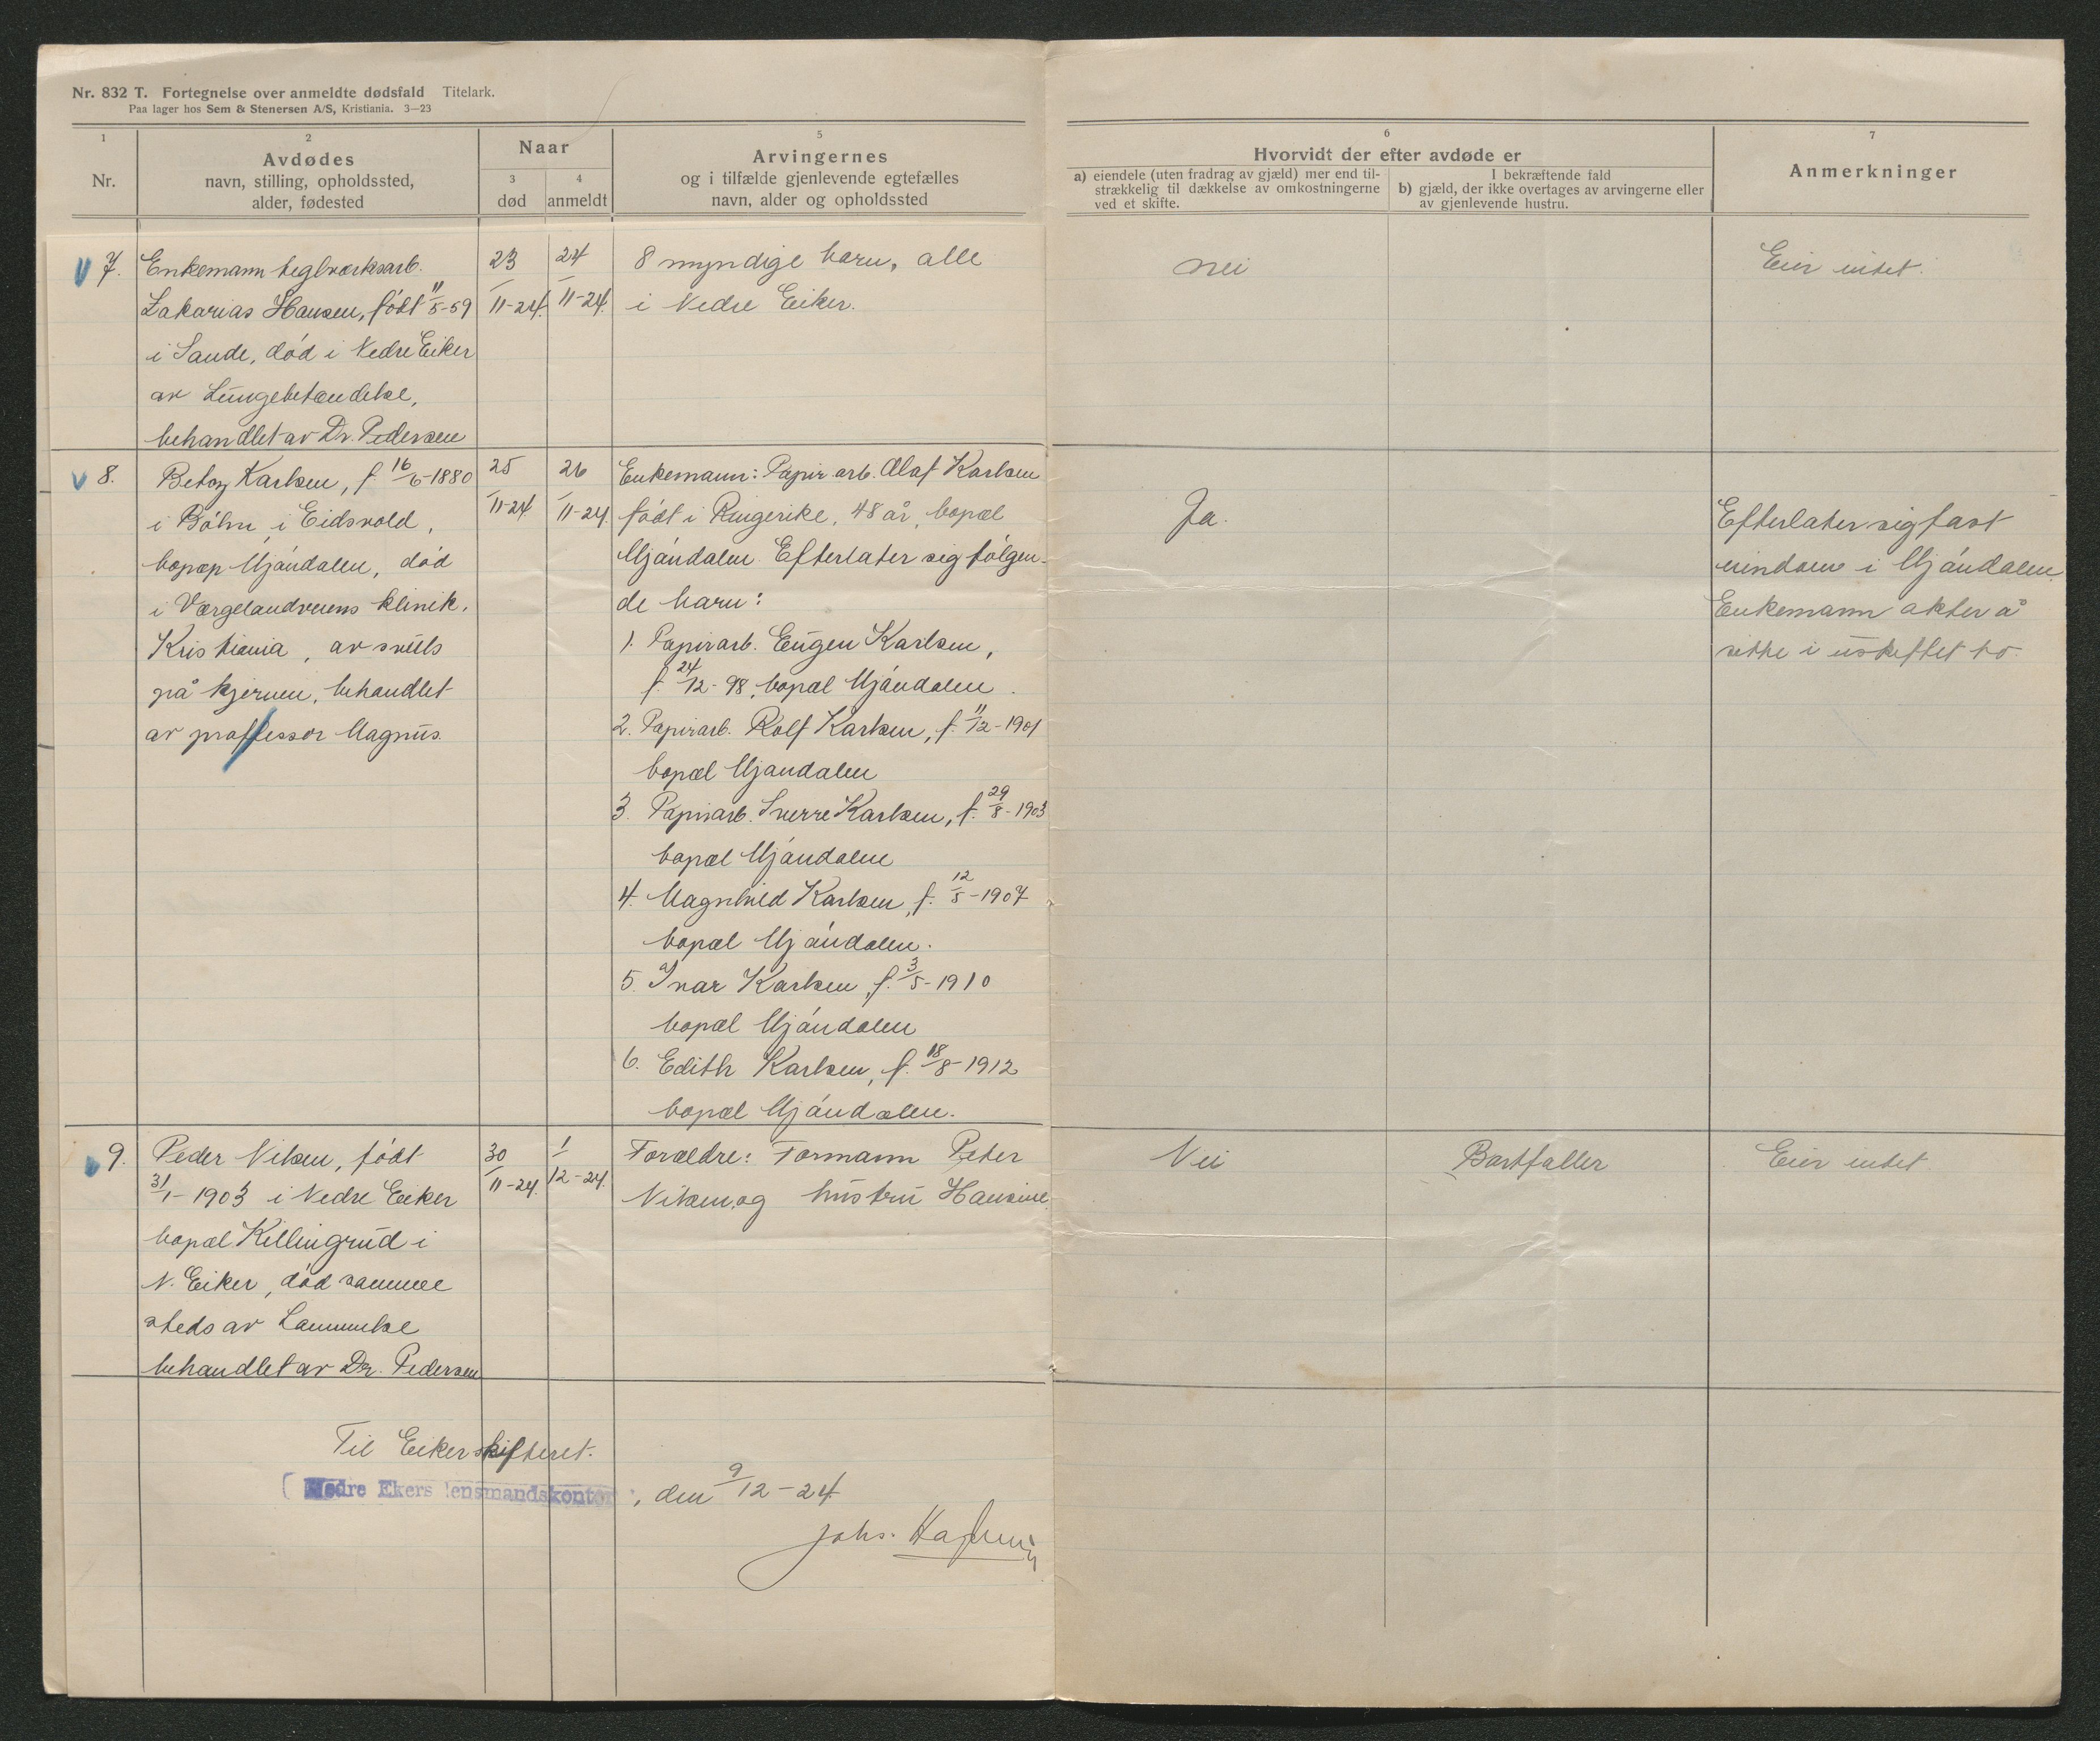 Nr. 832 T. Fortegnelse over anmeldte dødsfald Titelark.
Paa lager hos Sem & Stenersen A/S, Kristiania. 3—23
1
Nr.
2
Avdødes
navn, stilling, opholdssted,
alder, fødested
Naar
3
død
4
anmeldt
5
Arvingernes
og i tilfælde gjenlevende egtefælles
navn, alder og opholdssted
6
Hvorvidt der efter avdøde er
a) eiendele (uten fradrag av gjæld) mer end til-
strækkelig til dækkelse av omkostningerne
ved et skifte.
I bekræftende fald
b) gjæld, der ikke overtages av arvingerne eller
av gjenlevende hustru.
7
Anmerkninger
V 7.
Enkemann teglverksarb.
Zakarias Hansen, født 11/5-59
i Sande, død i Nedre Eiker
av Lungebetændelse,
behandlet av Dr. Pedersen
23/11-24.
24/11-24.
8 myndige barn, alle
i Nedre Eiker.
Nei
Eier intet.
V 8.
Betzy Karlsen, f. 16/6-1880
i Bøhn i Eidsvold,
bopæp Mjøndalen, død
i Vergelandveiens klinik,
Kristiania, av svuls
på hjernen, behandlet
av proffessor Magnus.
25/11-24
26/11-24
Enkemann: Papir arb. Olaf Karlsen
født i Ringerike, 48 år, bopæl
Mjøndalen. Efterlater sig følgen-
de barn:
1. Papirarb. Eugen Karlsen,
f. 24/12-98, bopæl Mjøndalen.
2. Papirarb. Rolf Karlsen, f. 11/12-1901
bopæl Mjøndalen
3. Papirarb. Sverre Karlsen, f. 29/8-1903
bopæl Mjøndalen
4. Magnhild Karlsen, f. 12/5-1907
bopæl Mjøndalen.
5. Ivar Karlsen, f. 3/5-1910
bopæl Mjøndalen
6. Edith Karlsen, f. 18/8-1912
bopæl Mjøndalen.
Ja.
Efterlater sig fast
eiendom i Mjøndalen.
Enkemann akter å
sitte i uskiftet bo.
9.
Peder Nilsen, født
31/1-1903 i Nedre Eiker
bopæl Killingrud i
N. Eiker, død samme
steds av Lammelse
behandlet av Dr. Pedersen
30/11-24.
1/12-24.
Forældre: Formann Peter
Nilsen, og hustru Hansine.
Nei
Bortfaller
Eier intet
Til Eiker skifteret.
Nedre Ekers lensmandskontor, den 9/12-24.
Johs.